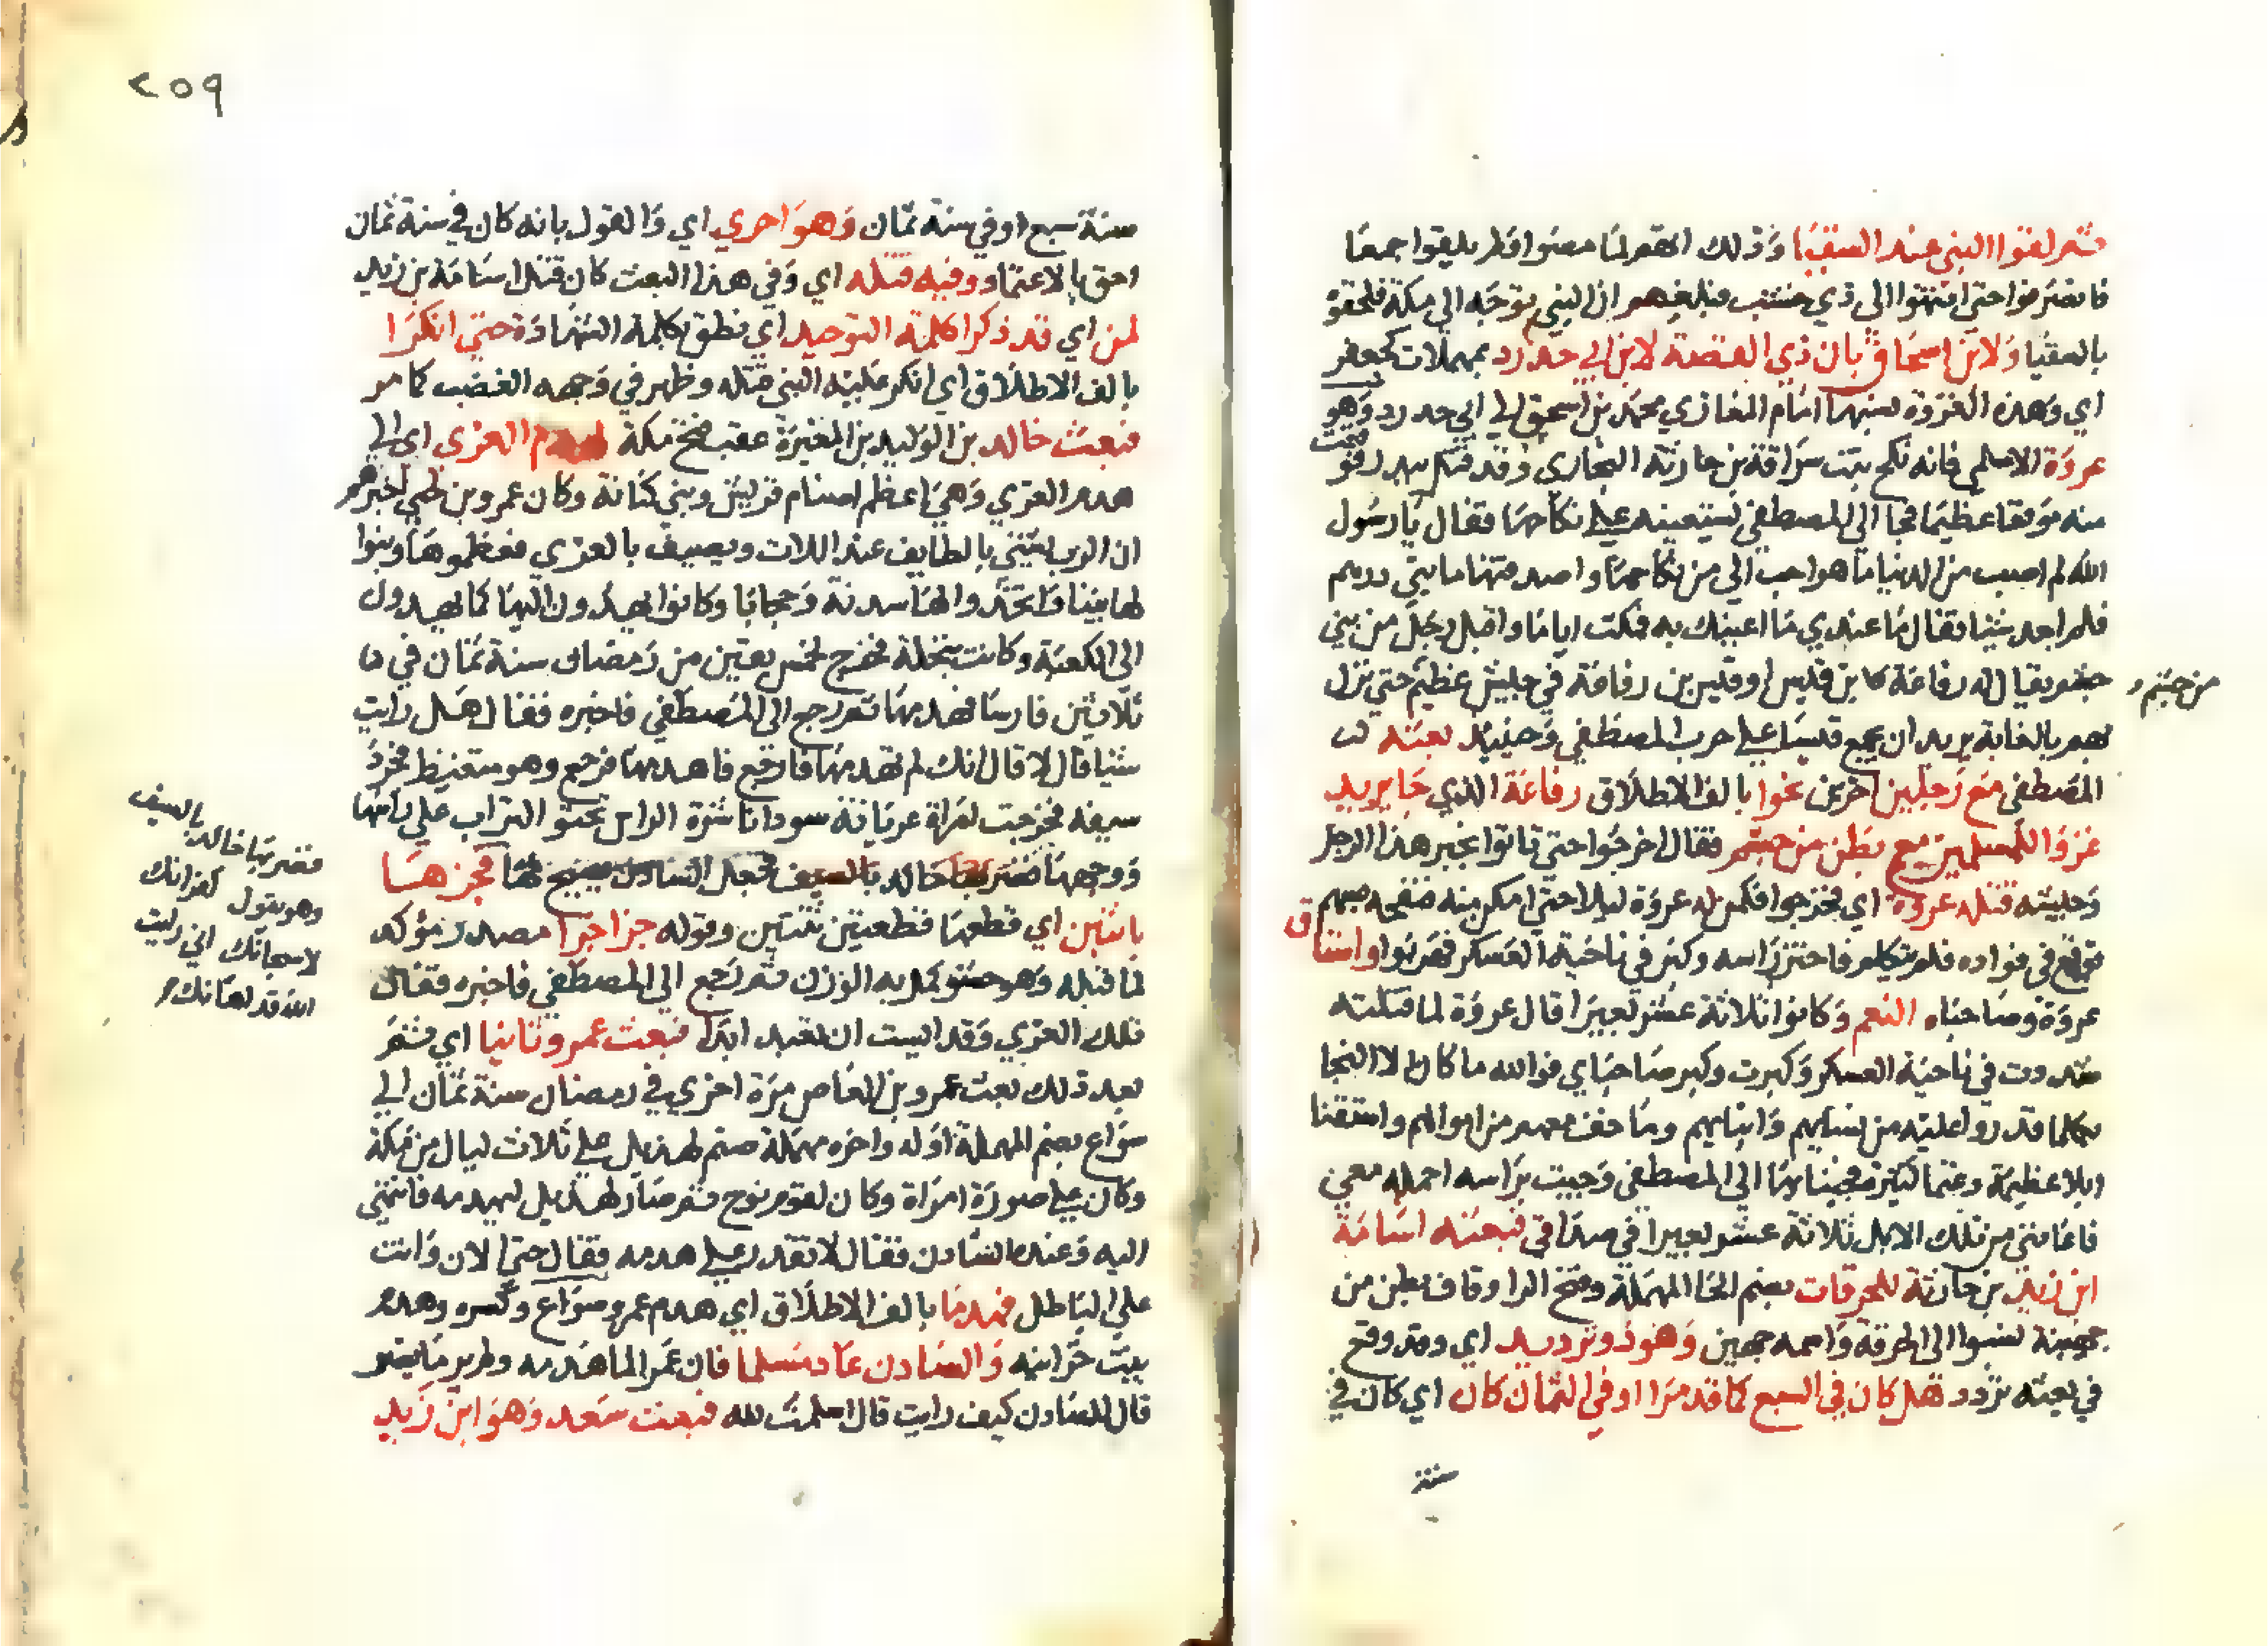 ثم لقوا النبي عند السقيا وذلك انهم لما مضوا فلم يلقوا جمعا
فانصرفوا حتى انتهوا الى ذي خشب فبلغهم ان النبي توجه الى مكة فلحقوه
بالسقيا ولابن اسحاق بان ذي القصة لابن ابي حدرد بمهملات كجعفر
اي وهذه الغزوة نسبها امام المغازي محمد بن اسحق الى ابي حدرد وهو
عروة الاسلمي فانه نكح بنت سراقة بن حارثة النجاري وقد قتل ببدر
منه موقعا عظيما فجا الى المصطفى يستعينه على نكاحها فقال يا رسول
الله لم اصب من الدنيا ما هو احب الي من نكاحها واصدقتها مايتي درهم
فلم اجد شيا فقال ما عندي ما اعينك به فمكث اياما واقبل رجل من بني
جشم يقال له رفاعة كا بن قيس او قيس بن رفاعة في جيش عظيم حتى نزل
من جشم
بهم بالغابة يريد ان يجمع قيسا على حرب المصطفى وحينيذ بعثه
المصطفى مع رجلين اخرين نحوا بالف الاطلاق رفاعة الذي جا يريد
غزوا للمسلمين مع بطن من جشم فقال اخرجوا حتى تاتوا بخبر هذا الرجل
وجيشه قتله عروة اي فخرجوا فكمن له عروة ليلا حتى امكن منه فنفحه بسهم
فوقع في فواده فلم يتكلم فاحتز راسه وكبر في ناحية العسكر فهربوا واستاق
عروة وصاحباه النعم وكانوا ثلاثة عشر بعيرا قال عروة لما قتلته
شددت في ناحية العسكر وكبرت وكبر صاحباي فوالله ما كان الا النجا
بكلما قدروا عليه من نسايهم وابنايهم وما خف معهم من اموالهم واستقنا
ابلا عظيمة وغنما كثيرة فجينا بها الى المصطفى وجيت براسه احمله معي
فاعانني من تلك الابل ثلاثة عشر بعيرا في صداقي فبعثه اسامة
ابن زيد بن حارثة للحرقات بضم الحا المهملة وفتح الرا وقاف بطن من
جهينة نسبوا الى الحرقة واسمه جهين وهو ذو ترديد اي وقد وقع
في بعثه تردد هل كان في السبع كما قد مرا او في الثمان كان اي كان في
سنة
٢٥٩
سنة سبع او في سنة ثمان وهو احري اي والقول بانه كان في سنة ثمان
احق بالاعتماد وفيه قتله اي وفي هذا البعث كان قتل اسامة بن زيد
لمن اي قد ذكرا كلمة التوحيد اي نطق بكلمة الشهادة حتى انكرا
بالف الاطلاق اي انكر عليه النبي قتله وظهر في وجهه الغضب كما مر
فبعث خالد بن الوليد بن المغيرة عقب فتح مكة لهدم العزى اي الى
هدم العزي وهي اعظم اصنام قريش وبني كنانة وكان عمرو بن لحي اخبرهم
ان الرب يشتي بالطايف عند اللات ويصيف بالعزي فعظموها وبنوا
لها بيتا واتخذوا لها سدنة وحجابا وكانوا يهدون اليها كما يهدون
الى الكعبة وكانت بنخلة فخرج لخمس بقين من رمضان سنة ثمان في
ثلاثين فارسا فهدمها ثم رجع الى المصطفى فاخبره فقال هل رايت
شيا قال لا قال انك لم تهدمها فارجع فاهدمها فرجع وهو متغيظ فجرد
سيفه فخرجت امراة عريانة سودا ناشرة الراس تحثو التراب على راسها
ووجهها فضربها خالد بالسيف فجعل السادن يصيح لها فجزها
فضربها خالد بالسيف
وهو يقول كفرانك
لا سبحانك اني رايت
الله قد اهانك
باثنين اي قطعها قطعتين ثنتين وقوله جزا جزا مصدر مؤكد
لما قبله وهو حشو كمل به الوزن ثم رجع الى المصطفي فاخبره فقال
تلك العزي وقد ايست ان تعبد ابدا فبعث عمرو ثانيا اي ثم
بعد ذلك بعث عمرو بن العاص مرة اخري في رمضان سنة ثمان الى
سواع بضم المهملة اوله واخره مهملة صنم لهذيل على ثلاث ليال من مكة
وكان على صورة امراة وكان لقوم نوح ثم صار لهذيل ليهدمه فانتهي
اليه وعنده السادن فقال لا تقدر على هدمه فقال حتى الان وانت
على الباطل فهدما بالف الاطلاق اي هدم عمرو سواع وكسره وهدم
بيت خزانته والسادن عاد مسلما فان عمرا لما هدمه ولم ير ما يضر
قال للسادن كيف رايت قال اسلمت لله فبعث سعد وهو ابن زيد